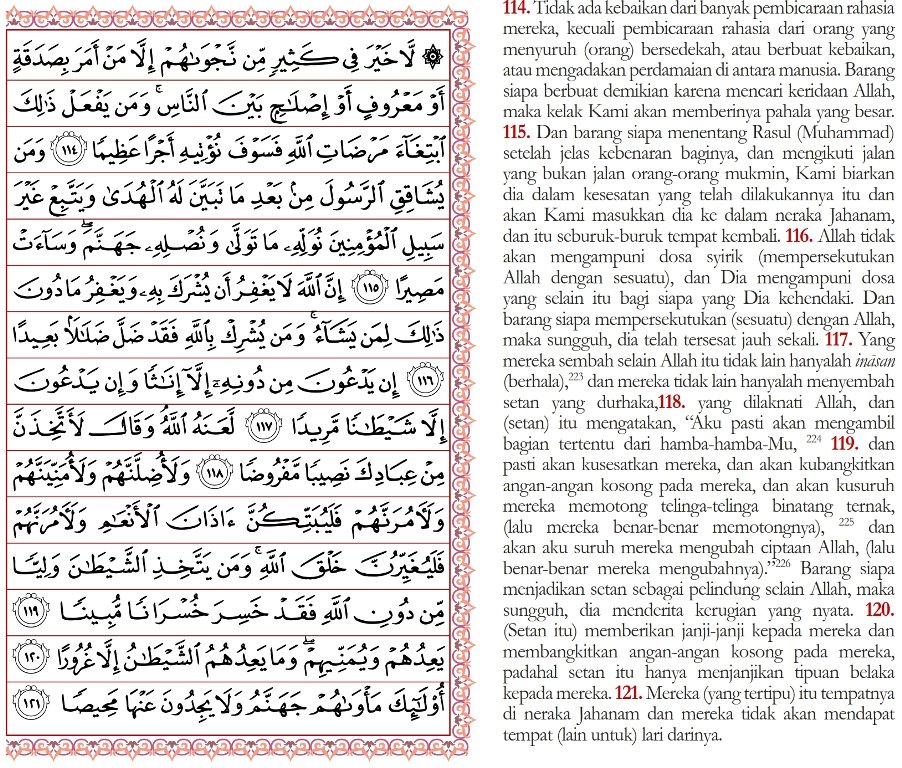 ۞ لَّا خَيْرَ فِي كَثِيرٍ مِّن نَّجْوَىٰهُمْ إِلَّا مَنْ أَمَرَ بِصَدَقَةٍ
أَوْ مَعْرُوفٍ أَوْ إِصْلَٰحٍ بَيْنَ النَّاسِ ۚ وَمَن يَفْعَلْ ذَٰلِكَ
ابْتِغَاءَ مَرْضَاتِ اللَّهِ فَسَوْفَ نُؤْتِيهِ أَجْرًا عَظِيمًا ١١٤ وَمَن
يُشَاقِقِ الرَّسُولَ مِنۢ بَعْدِ مَا تَبَيَّنَ لَهُ الْهُدَىٰ وَيَتَّبِعْ غَيْرَ
سَبِيلِ الْمُؤْمِنِينَ نُوَلِّهِۦ مَا تَوَلَّىٰ وَنُصْلِهِۦ جَهَنَّمَ ۖ وَسَآءَتْ
مَصِيرًا ١١٥ إِنَّ اللَّهَ لَا يَغْفِرُ أَن يُشْرَكَ بِهِۦ وَيَغْفِرُ مَا دُونَ
ذَٰلِكَ لِمَن يَشَآءُ ۚ وَمَن يُشْرِكْ بِاللَّهِ فَقَدْ ضَلَّ ضَلَٰلًۢا بَعِيدًا
١١٦ إِن يَدْعُونَ مِن دُونِهِۦٓ إِلَّآ إِنَٰثًا وَإِن يَدْعُونَ
إِلَّا شَيْطَٰنًا مَّرِيدًا ١١٧ لَّعَنَهُ اللَّهُ ۘ وَقَالَ لَأَتَّخِذَنَّ
مِنْ عِبَادِكَ نَصِيبًا مَّفْرُوضًا ١١٨ وَلَأُضِلَّنَّهُمْ وَلَأُمَنِّيَنَّهُمْ
وَلَءَامُرَنَّهُمْ فَلَيُبَتِّكُنَّ ءَاذَانَ الْأَنْعَٰمِ وَلَءَامُرَنَّهُمْ
فَلَيُغَيِّرُنَّ خَلْقَ اللَّهِ ۚ وَمَن يَتَّخِذِ الشَّيْطَٰنَ وَلِيًّا
مِّن دُونِ اللَّهِ فَقَدْ خَسِرَ خُسْرَانًا مُّبِينًا ١١٩
يَعِدُهُمْ وَيُمَنِّيهِمْ ۖ وَمَا يَعِدُهُمُ الشَّيْطَٰنُ إِلَّا غُرُورًا ١٢٠
أُو۟لَٰٓئِكَ مَأْوَىٰهُمْ جَهَنَّمُ وَلَا يَجِدُونَ عَنْهَا مَحِيصًا ١٢١
114. Tidak ada kebaikan dari banyak pembicaraan rahasia
mereka, kecuali pembicaraan rahasia dari orang yang
menyuruh (orang) bersedekah, atau berbuat kebaikan,
atau mengadakan perdamaian di antara manusia. Barang
siapa berbuat demikian karena mencari keridaan Allah,
maka kelak Kami akan memberinya pahala yang besar.
115. Dan barang siapa menentang Rasul (Muhammad)
setelah jelas kebenaran baginya, dan mengikuti jalan
yang bukan jalan orang-orang mukmin, Kami biarkan
dia dalam kesesatan yang telah dilakukannya itu dan
akan Kami masukkan dia ke dalam neraka Jahanam,
dan itu seburuk-buruk tempat kembali. 116. Allah tidak
akan mengampuni dosa syirik (mempersekutukan
Allah dengan sesuatu), dan Dia mengampuni dosa
yang selain itu bagi siapa yang Dia kehendaki. Dan
barang siapa mempersekutukan (sesuatu) dengan Allah,
maka sungguh, dia telah tersesat jauh sekali. 117. Yang
mereka sembah selain Allah itu tidak lain hanyalah ināsan
(berhala),223 dan mereka tidak lain hanyalah menyembah
setan yang durhaka,118. yang dilaknati Allah, dan
(setan) itu mengatakan, “Aku pasti akan mengambil
bagian tertentu dari hamba-hamba-Mu, 224 119. dan
pasti akan kusesatkan mereka, dan akan kubangkitkan
angan-angan kosong pada mereka, dan akan kusuruh
mereka memotong telinga-telinga binatang ternak,
(lalu mereka benar-benar memotongnya), 225 dan
akan aku suruh mereka mengubah ciptaan Allah, (lalu
benar-benar mereka mengubahnya).”226 Barang siapa
menjadikan setan sebagai pelindung selain Allah, maka
sungguh, dia menderita kerugian yang nyata. 120.
(Setan itu) memberikan janji-janji kepada mereka dan
membangkitkan angan-angan kosong pada mereka,
padahal setan itu hanya menjanjikan tipuan belaka
kepada mereka. 121. Mereka (yang tertipu) itu tempatnya
di neraka Jahanam dan mereka tidak akan mendapat
tempat (lain untuk) lari darinya.